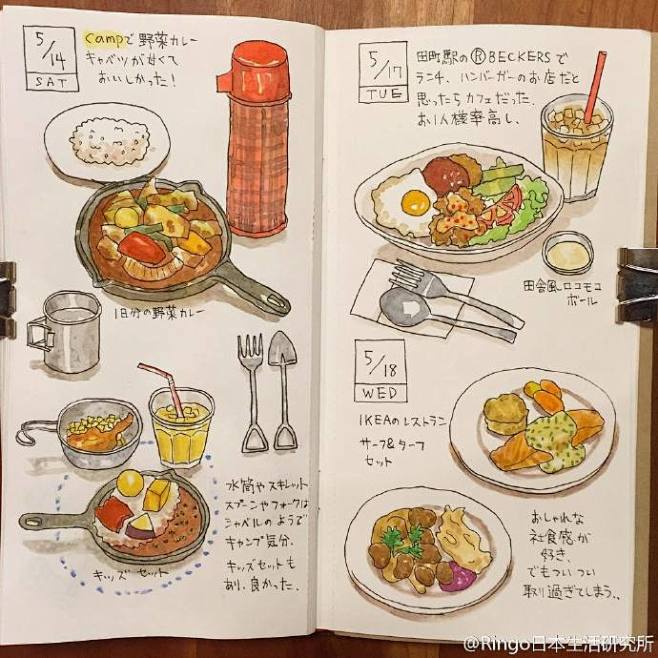 5/14
SAT
campで野菜カレー
キャベツが甘くて
おいしかった!
1日分の野菜カレー
水筒やスキレット
スプーンやフォークは
シャベルのようで
キャンプ気分.
キッズセットも
あり、良かった.
キッズセット
5/17
TUE
田町駅のⓇBECKERSで
ランチ、ハンバーガーのお店だと
思ったらカフェだった.
お1人様率高し、
田舎風ロコモコ
ボール
5/18
WED
IKEAのレストラン
サーフ&ターフ
セット
おしゃれな
社食感が
好き、
でもついつい
取り過ぎてしまう..
@Ringo日本生活研究所